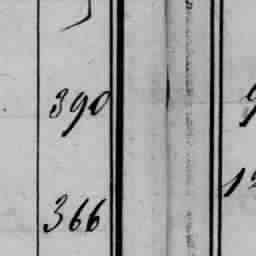 390
366